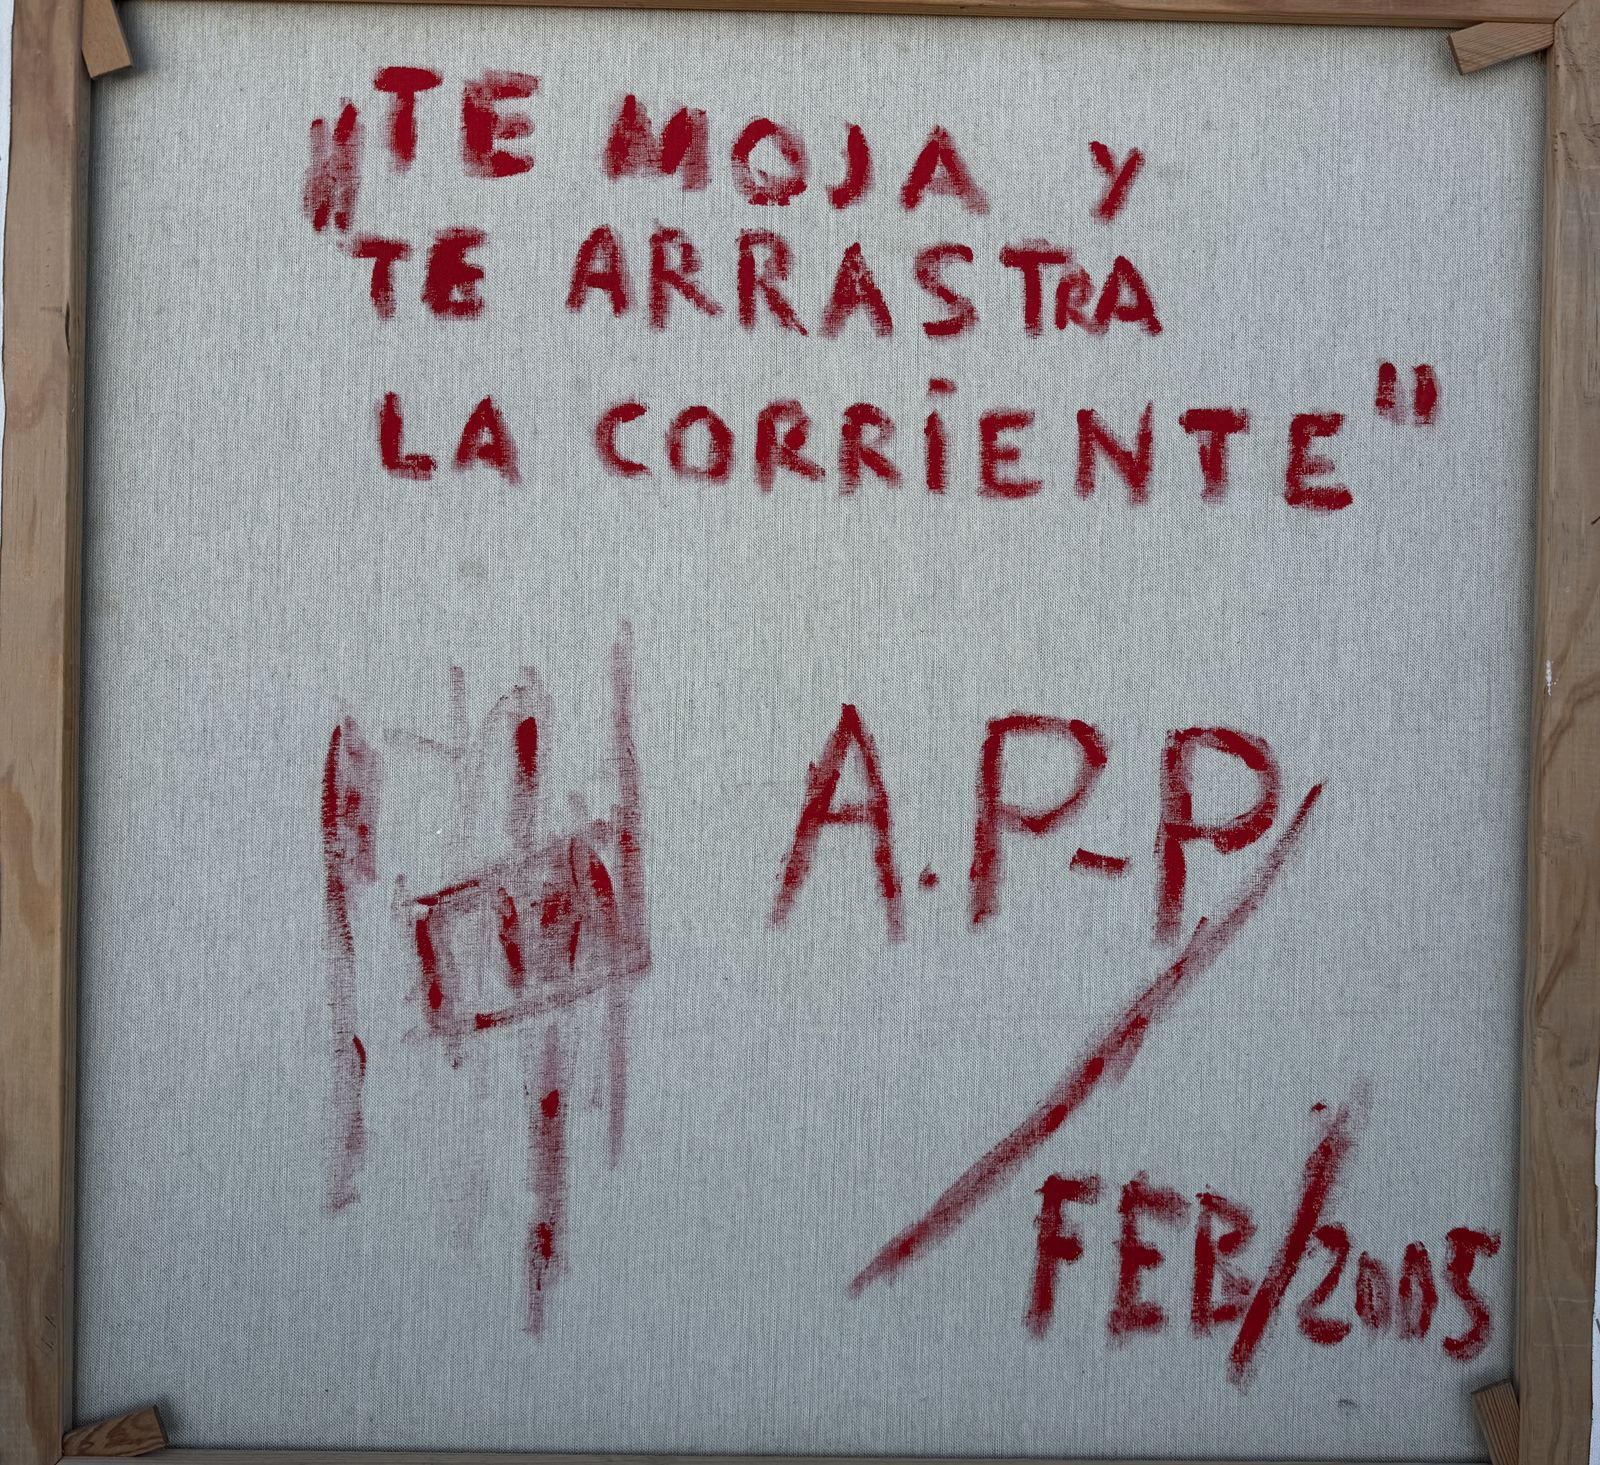 "TE MOJA Y
TE ARRASTRA
LA CORRIENTE"
A.P-P
FEB/2005